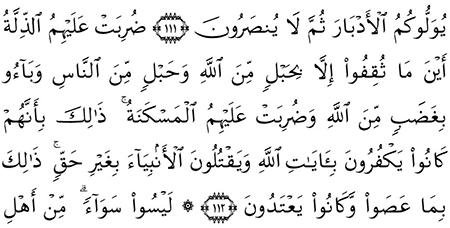 يُوَلُّوكُمُ ٱلْأَدْبَارَ ثُمَّ لَا يُنصَرُونَ ١١١ ضُرِبَتْ عَلَيْهِمُ ٱلذِّلَّةُ
أَيْنَ مَا ثُقِفُوٓا۟ إِلَّا بِحَبْلٍ مِّنَ ٱللَّهِ وَحَبْلٍ مِّنَ ٱلنَّاسِ وَبَآءُو
بِغَضَبٍ مِّنَ ٱللَّهِ وَضُرِبَتْ عَلَيْهِمُ ٱلْمَسْكَنَةُ ۚ ذَٰلِكَ بِأَنَّهُمْ
كَانُوا۟ يَكْفُرُونَ بِـَٔايَٰتِ ٱللَّهِ وَيَقْتُلُونَ ٱلْأَنۢبِيَآءَ بِغَيْرِ حَقٍّ ۚ ذَٰلِكَ
بِمَا عَصَوا۟ وَّكَانُوا۟ يَعْتَدُونَ ١١٢ ۞ لَيْسُوا۟ سَوَآءً ۗ مِّنْ أَهْلِ